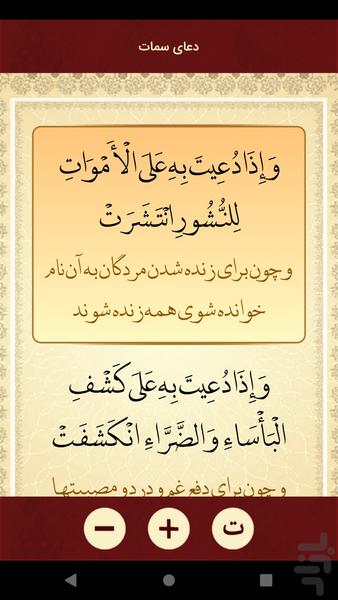 دعای سمات
وَإِذَا دُعِيتَ بِهِ عَلَى الْأَمْوَاتِ
لِلنُّشُورِ انْتَشَرَتْ
و چون برای زنده شدن مردگان به آن نام
خوانده شوی همه زنده شوند
وَإِذَا دُعِيتَ بِهِ عَلَى كَشْفِ
الْبَأْسَاءِ وَالضَّرَّاءِ انْكَشَفَتْ
و چون برای دفع غم و درد و مصیبتها
ت
بازار